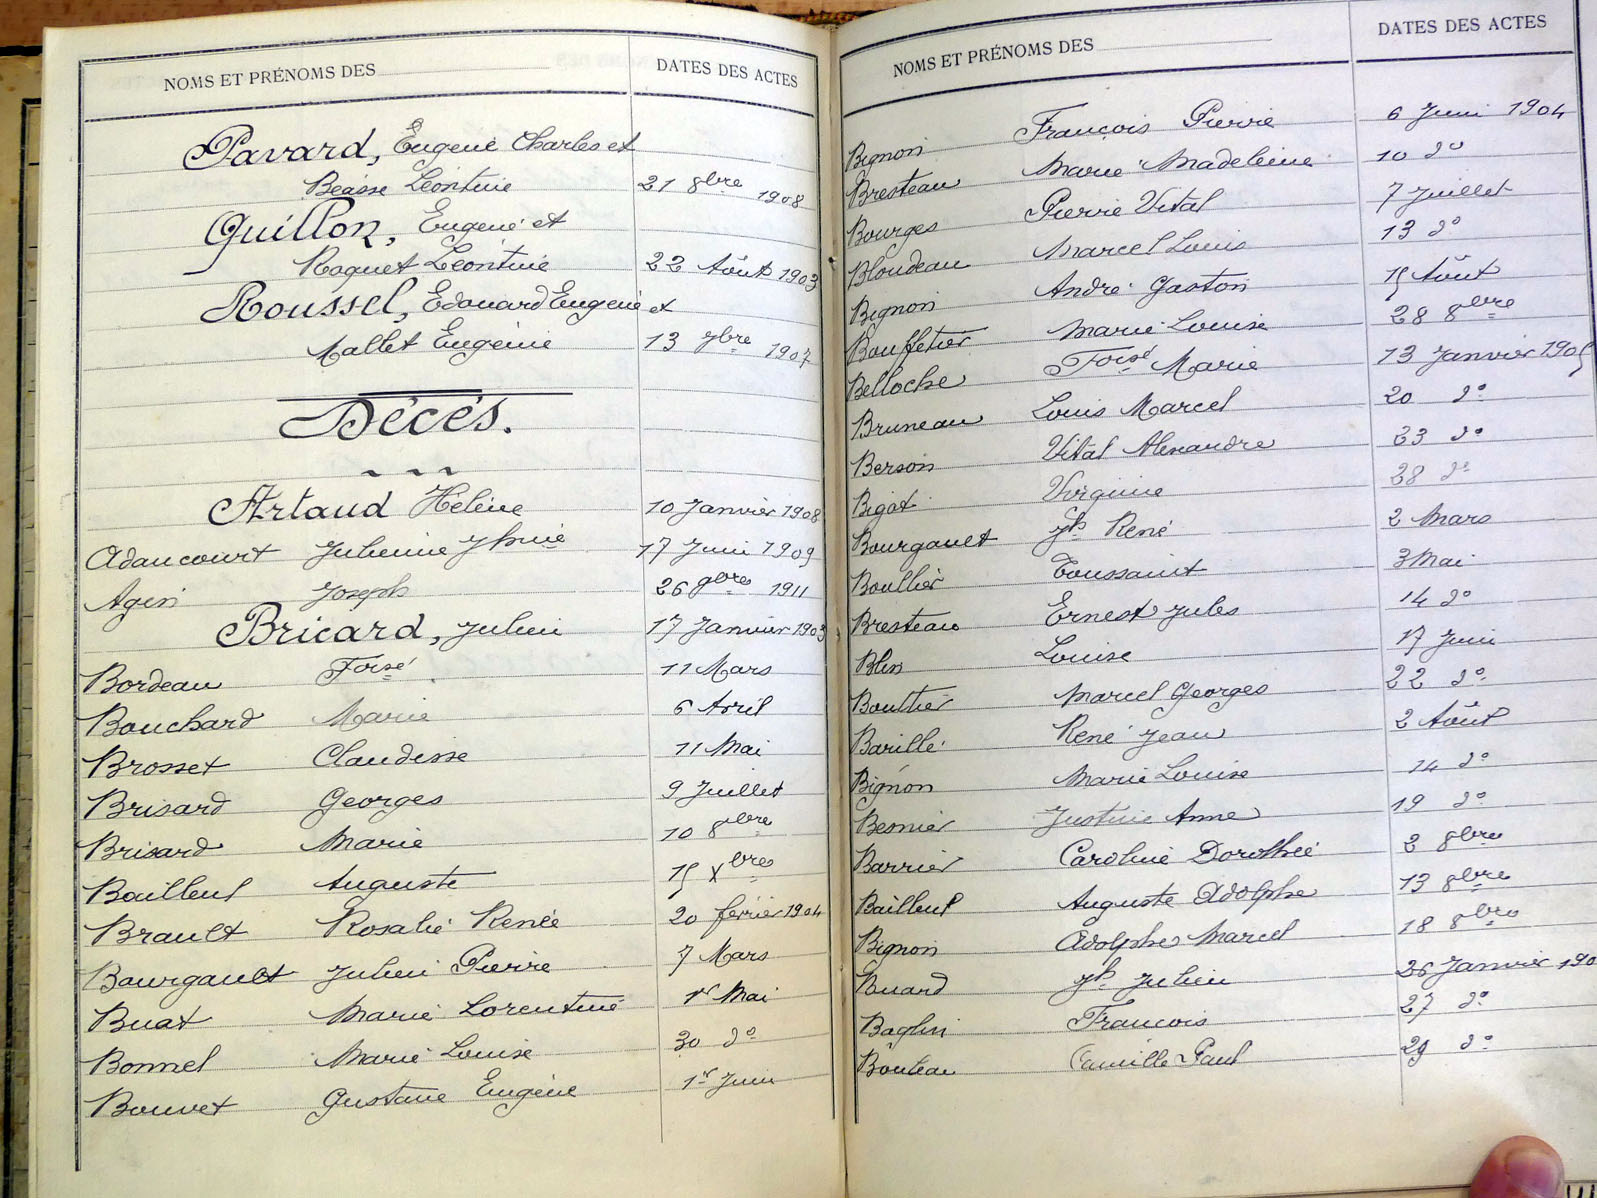 NOMS ET PRÉNOMS DES DATES DES ACTES
Pavard, Eugène Charles et
Beasse Léontine 21 8bre 1908
Guillon, Eugène et
Roquet Léontine 22 Août 1903
Roussel, Edouard Eugène et
Mallet Eugénie 13 7bre 1907
Décès.
Artaud Hélène 10 Janvier 1908
Adancourt Julienne 17 Juin 1909
Agin Joseph 26 9bre 1911
Bricard, Julien 17 Janvier 1903
Bordeau Forsé 11 Mars
Bouchard Marie 6 Avril
Brosset Claudisse 11 Mai
Brisard Georges 9 Juillet
Brisard Marie 10 8bre
Bailleul Auguste 15 Xbre
Brault Rosalie Renée 20 février 1904
Bourgault Julien Pierre 7 Mars
Buat Marie Lorentine 1er Mai
Bonnel Marie Louise 30 do
Bouvet Gustave Eugène 1er Juin
NOMS ET PRÉNOMS DES DATES DES ACTES
Bignon François Pierre 6 Juin 1904
Bresteau Marie Madeleine 10 do
Bourges Pierre Vital 7 Juillet
Bloudeau Marcel Louis 13 do
Bignon André Gaston 15 Août
Bouffetier Marie Louise 28 8bre
Belloche Forsé Marie 13 Janvier 1905
Bruneau Louis Marcel 20 do
Berson Vital Alexandre 23 do
Bigot Virginie 28 do
Bourgault Jh René 2 Mars
Boullier Toussaint 3 Mai
Bresteau Ernest Jules 14 do
Blin Louise 17 Juin
Bouttier Marcel Georges 22 do
Barillé René Jean 2 Août
Bignon Marie Louise 14 do
Besnier Justine Anne 19 do
Barrier Caroline Dorothée 3 8bre
Bailleul Auguste Adolphe 13 8bre
Bignon Adolphe Marcel 18 8bre
Buard Jh Julien 26 Janvier 190
Baglin François 27 do
Bouteau Camille Paul 29 do